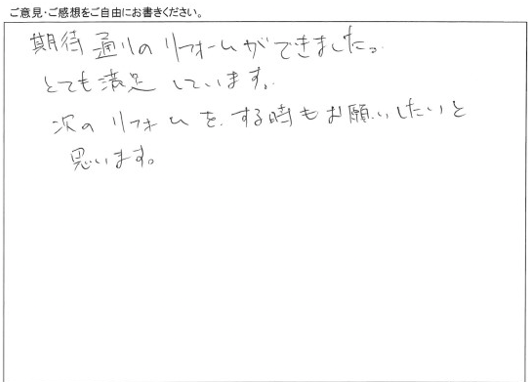 ご意見・ご感想をご自由にお書きください。
期待通りのリフォームができました。
とても満足しています。
次のリフォームを、する時もお願いしたいと
思います。